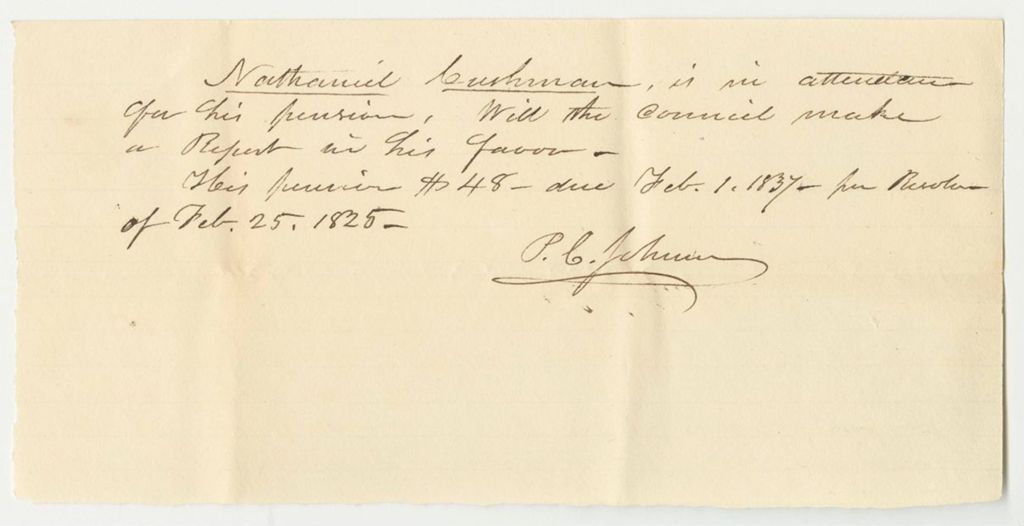 Nathaniel Cushman, is in attendance
for his pension, Will the Council make
a Report in his favor –
His pension $48 – due Feb. 1. 1837 – per Resolve
of Feb. 25. 1825 –
P. C. Johnson